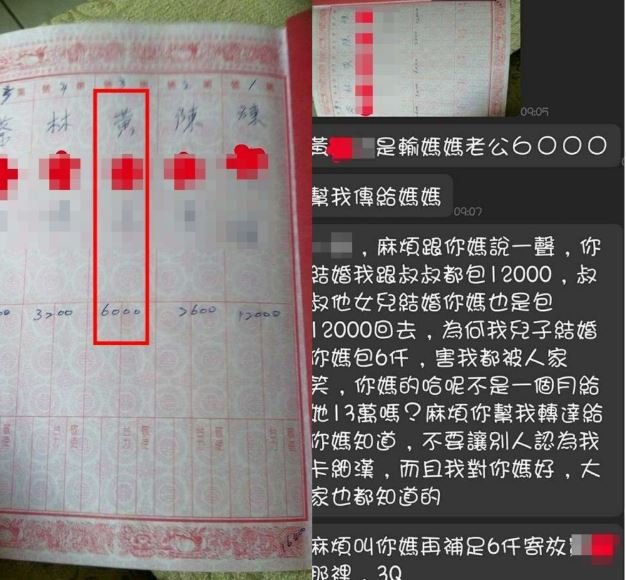 林 黃 陳
3200 6000 2600 12000
09:05
黃是輸媽媽老公6000
幫我傳給媽媽
09:07
，麻煩跟你媽說一聲，你
結婚我跟叔叔都包12000，叔
叔他女兒結婚你媽也是包
12000回去，為何我兒子結婚
你媽包6仟，害我都被人家
笑，你媽的哈呢不是一個月給
她13萬嗎？麻煩你幫我轉達給
你媽知道，不要讓別人認為我
卡細漢，而且我對你媽好，大
家也都知道的
麻煩叫你媽再補足6仟寄放
那裡，3Q